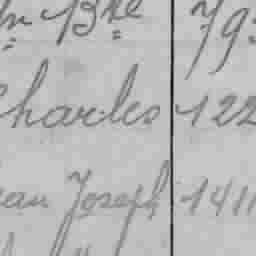 Bte 79
Charles 122
ean Joseph 1411